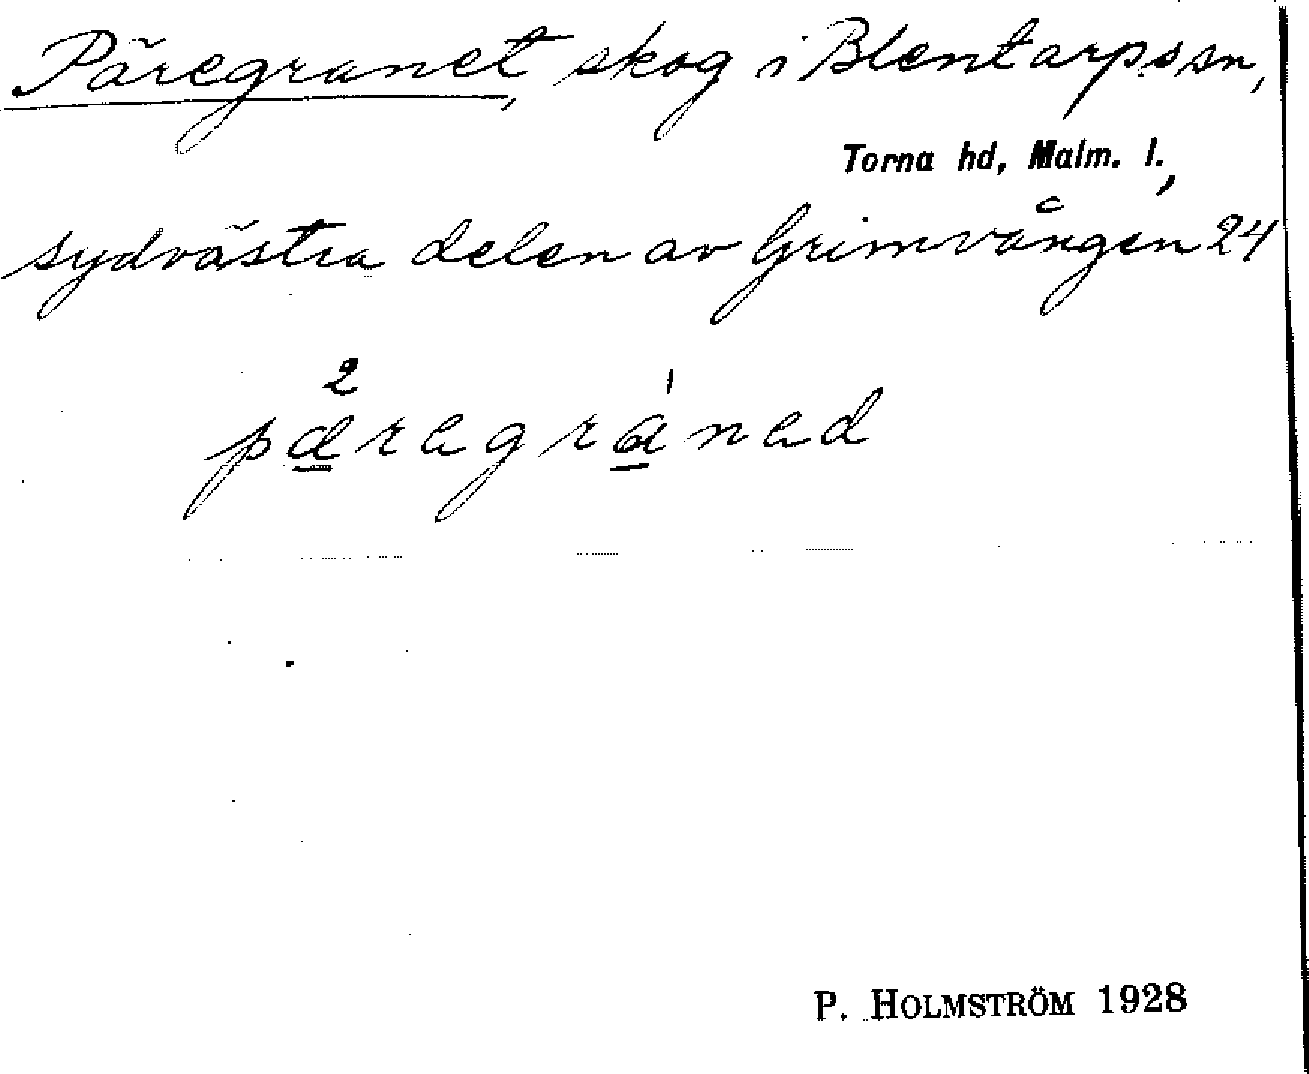 Päregranet, skog i Blentarps sn,
Torna hd, Malm. l.,
sydvästra delen av Grimvången 24
2 1
päregraned
P. HOLMSTRÖM 1928